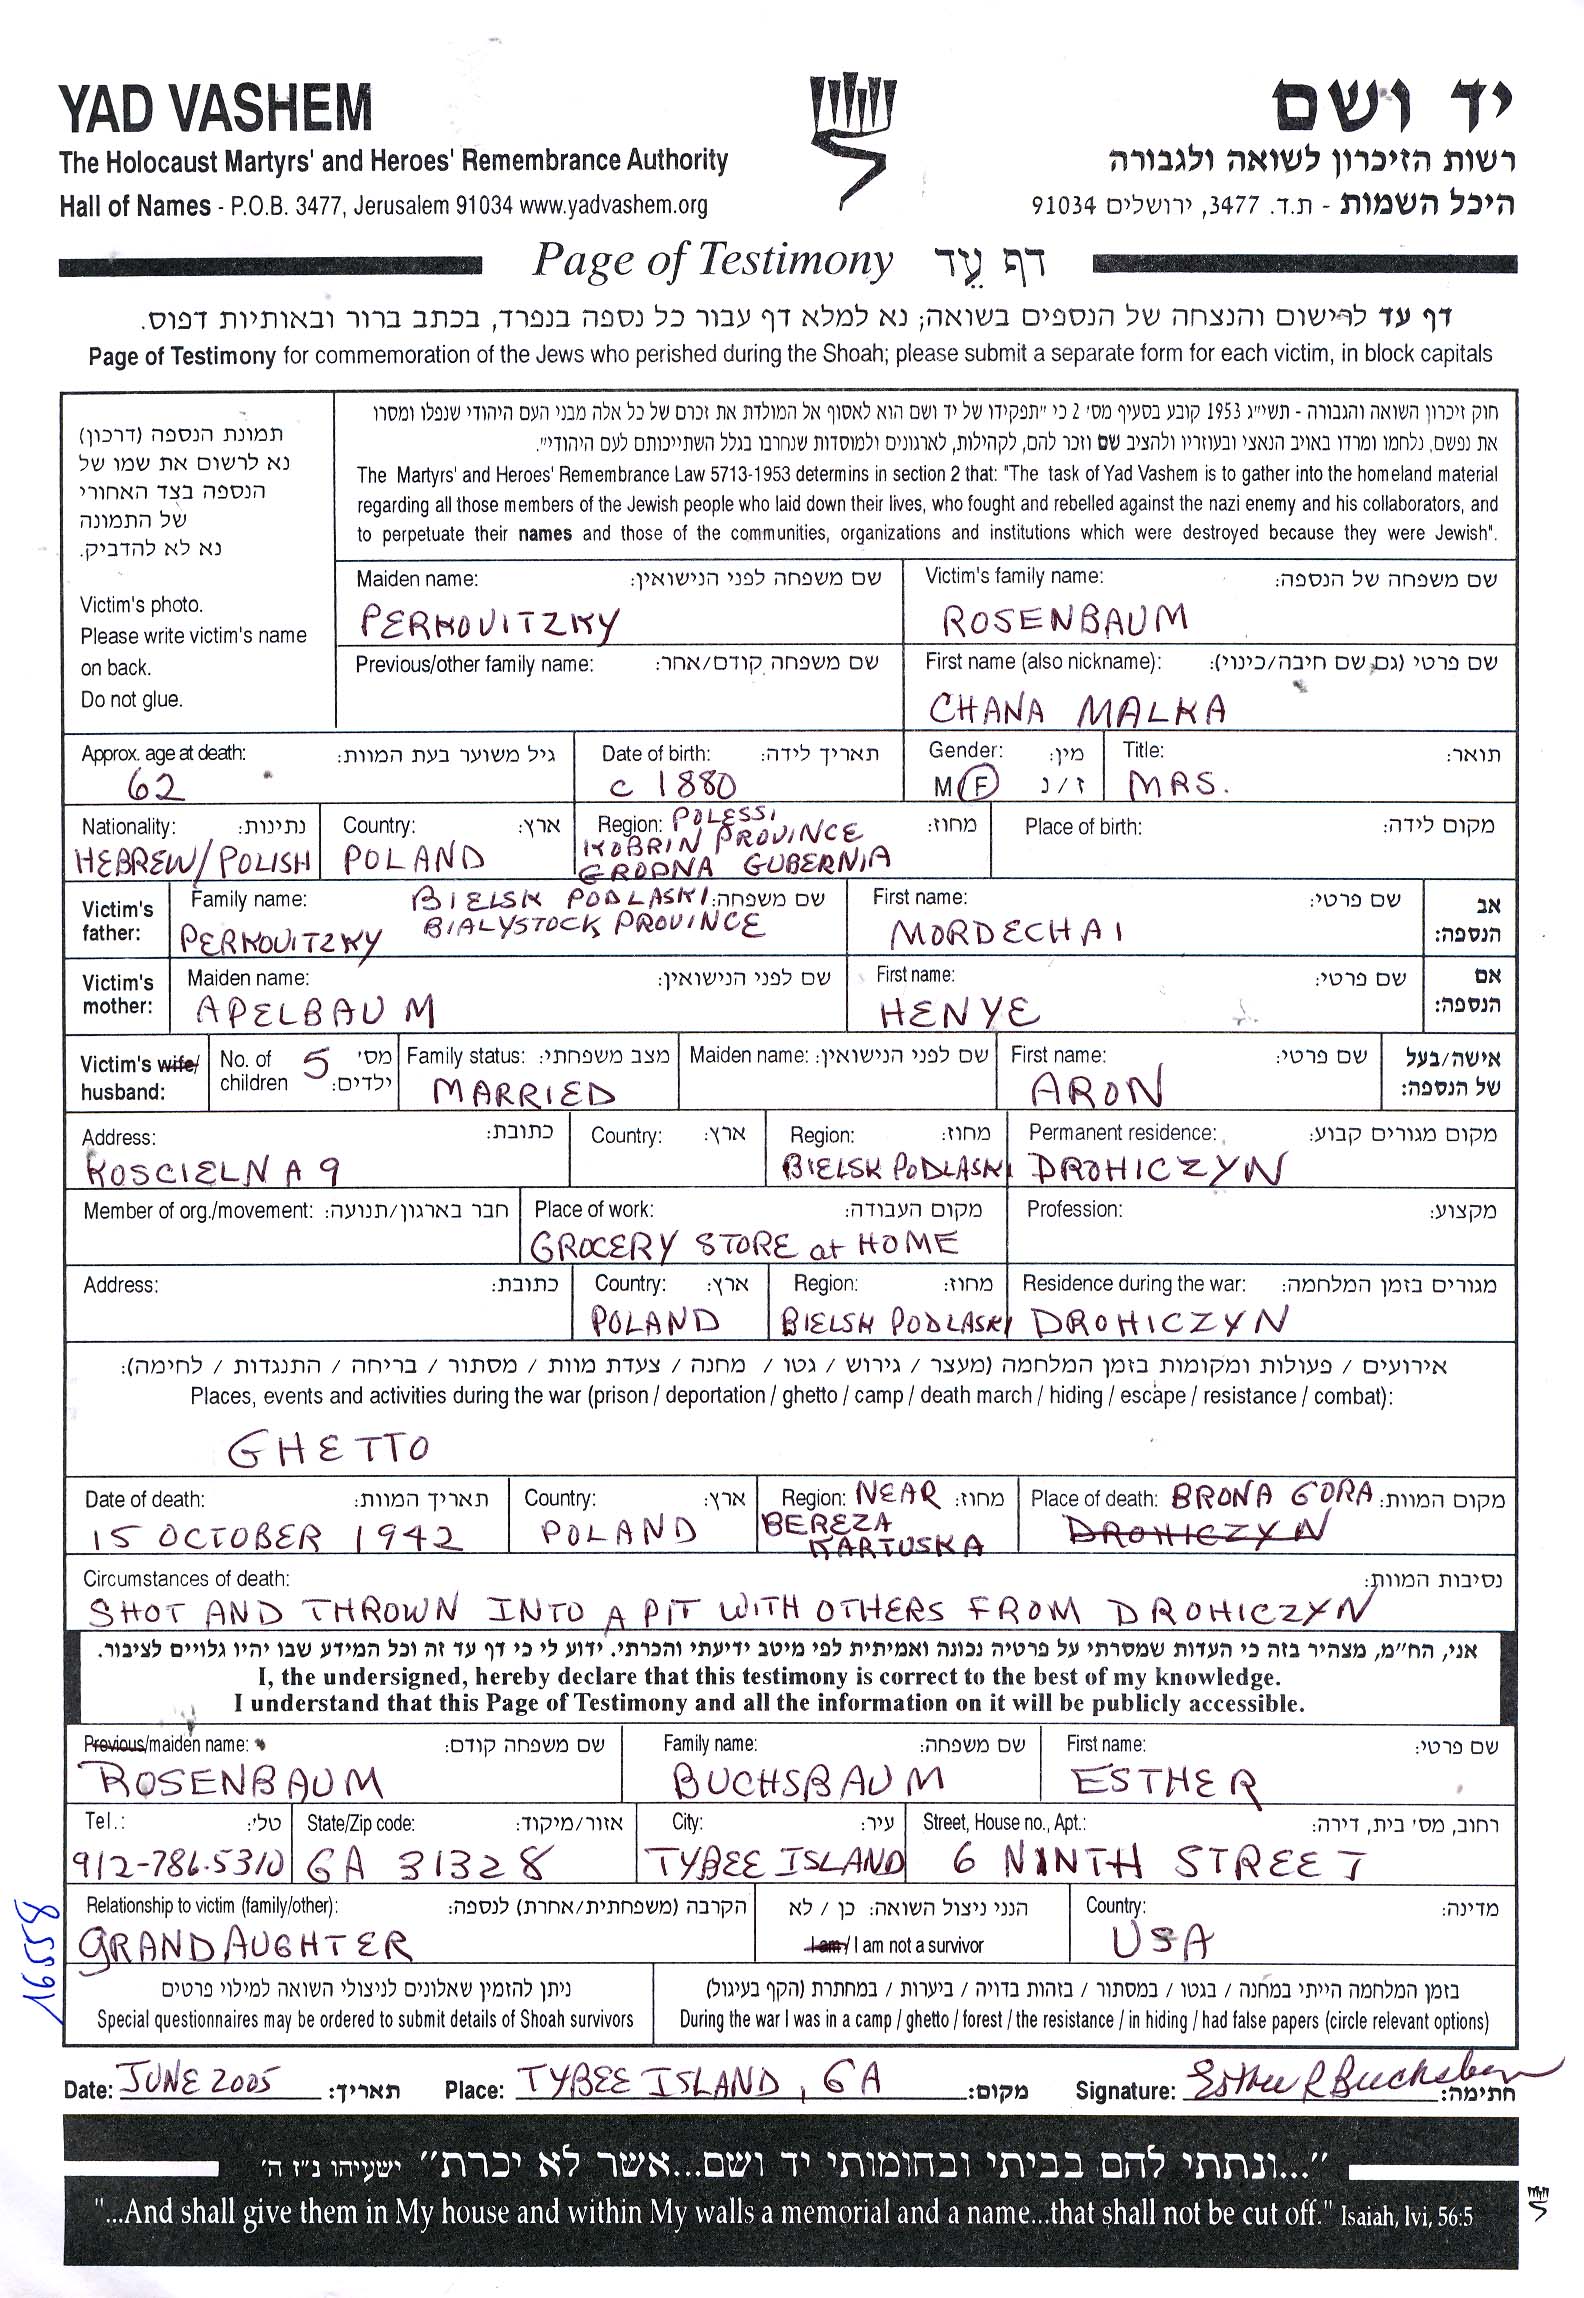 YAD VASHEM
יד ושם
The Holocaust Martyrs' and Heroes' Remembrance Authority
רשות הזיכרון לשואה ולגבורה
Hall of Names - P.O.B. 3477, Jerusalem 91034 www.yadvashem.org
היכל השמות - ת.ד. 3477, ירושלים 91034
Page of Testimony דף עֵד
דף עד לרישום והנצחה של הנספים בשואה; נא למלא דף עבור כל נספה בנפרד, בכתב ברור ובאותיות דפוס.
Page of Testimony for commemoration of the Jews who perished during the Shoah; please submit a separate form for each victim, in block capitals
תמונת הנספה (דרכון)
נא לרשום את שמו של
הנספה בצד האחורי
של התמונה
נא לא להדביק.
Victim's photo.
Please write victim's name
on back.
Do not glue.
חוק זיכרון השואה והגבורה - תשי״ג 1953 קובע בסעיף מס' 2 כי "תפקידו של יד ושם הוא לאסוף אל המולדת את זכרם של כל אלה מבני העם היהודי שנפלו ומסרו
את נפשם, נלחמו ומרדו באויב הנאצי ובעוזריו ולהציב שם וזכר להם, לקהילות, לארגונים ולמוסדות שנחרבו בגלל השתייכותם לעם היהודי".
The Martyrs' and Heroes' Remembrance Law 5713-1953 determins in section 2 that: "The task of Yad Vashem is to gather into the homeland material
regarding all those members of the Jewish people who laid down their lives, who fought and rebelled against the nazi enemy and his collaborators, and
to perpetuate their names and those of the communities, organizations and institutions which were destroyed because they were Jewish".
Maiden name: שם משפחה לפני הנישואין:
PERKOVITZKY
Victim's family name: שם משפחה של הנספה:
ROSENBAUM
Previous/other family name: שם משפחה קודם/אחר:
First name (also nickname): שם פרטי (גם שם חיבה/כינוי):
CHANA MALKA
Approx. age at death: גיל משוער בעת המוות:
62
Date of birth: תאריך לידה:
c 1880
Gender: מין:
M F ז / נ
Title: תואר:
MRS.
Nationality: נתינות:
HEBREW/POLISH
Country: ארץ:
POLAND
Region: POLESSI מחוז:
KOBRIN PROVINCE
GRODNA GUBERNIA
Place of birth: מקום לידה:
Victim's father:
Family name: BIELSK PODLASKI שם משפחה:
PERKOVITZKY BIALYSTOCK PROVINCE
First name: שם פרטי:
MORDECHAI
אב הנספה:
Victim's mother:
Maiden name: שם לפני הנישואין:
APELBAUM
First name: שם פרטי:
HENYE
אם הנספה:
Victim's wife/ husband:
No. of children 5 מס' ילדים:
Family status: מצב משפחתי:
MARRIED
Maiden name: שם לפני הנישואין:
First name: שם פרטי:
ARON
אישה/בעל של הנספה:
Address: כתובת:
KOSCIELNA 9
Country: ארץ:
Region: מחוז:
BIELSK PODLASKI
Permanent residence: מקום מגורים קבוע:
DROHICZYN
Member of org./movement: חבר בארגון/תנועה:
Place of work: מקום העבודה:
GROCERY STORE at HOME
Profession: מקצוע:
Address: כתובת:
Country: ארץ:
POLAND
Region: מחוז:
BIELSK PODLASKI
Residence during the war: מגורים בזמן המלחמה:
DROHICZYN
אירועים / פעולות ומקומות בזמן המלחמה (מעצר / גירוש / גטו / מחנה / צעדת מוות / מסתור / בריחה / התנגדות / לחימה):
Places, events and activities during the war (prison / deportation / ghetto / camp / death march / hiding / escape / resistance / combat):
GHETTO
Date of death: תאריך המוות:
15 OCTOBER 1942
Country: ארץ:
POLAND
Region: NEAR מחוז:
BEREZA
KARTUSKA
Place of death: BRONA GORA מקום המוות:
DROHICZYN
Circumstances of death: נסיבות המוות:
SHOT AND THROWN INTO A PIT WITH OTHERS FROM DROHICZYN
אני, הח״מ, מצהיר בזה כי העדות שמסרתי על פרטיה נכונה ואמיתית לפי מיטב ידיעתי והכרתי. ידוע לי כי דף עד זה וכל המידע שבו יהיו גלויים לציבור.
I, the undersigned, hereby declare that this testimony is correct to the best of my knowledge.
I understand that this Page of Testimony and all the information on it will be publicly accessible.
Previous/maiden name: שם משפחה קודם:
ROSENBAUM
Family name: שם משפחה:
BUCHSBAUM
First name: שם פרטי:
ESTHER
Tel.: טלי:
912-786-5310
State/Zip code: אזור/מיקוד:
GA 31328
City: עיר:
TYBEE ISLAND
Street, House no., Apt.: רחוב, מס' בית, דירה:
6 NINTH STREET
Relationship to victim (family/other): הקרבה (משפחתית/אחרת) לנספה:
GRANDAUGHTER
הנני ניצול השואה: כן / לא
I am / I am not a survivor
Country: מדינה:
USA
ניתן להזמין שאלונים לניצולי השואה למילוי פרטים
Special questionnaires may be ordered to submit details of Shoah survivors
בזמן המלחמה הייתי במחנה / בגטו / במסתור / בזהות בדויה / ביערות / במחתרת (הקף בעיגול)
During the war I was in a camp / ghetto / forest / the resistance / in hiding / had false papers (circle relevant options)
16558
Date: JUNE 2005 תאריך: Place: TYBEE ISLAND, GA מקום: Signature: Esther R Buchsbaum חתימה:
"...ונתתי להם בביתי ובחומותי יד ושם...אשר לא יכרת" ישעיהו נ״ו ה'
"...And shall give them in My house and within My walls a memorial and a name...that shall not be cut off." Isaiah, lvi, 56:5